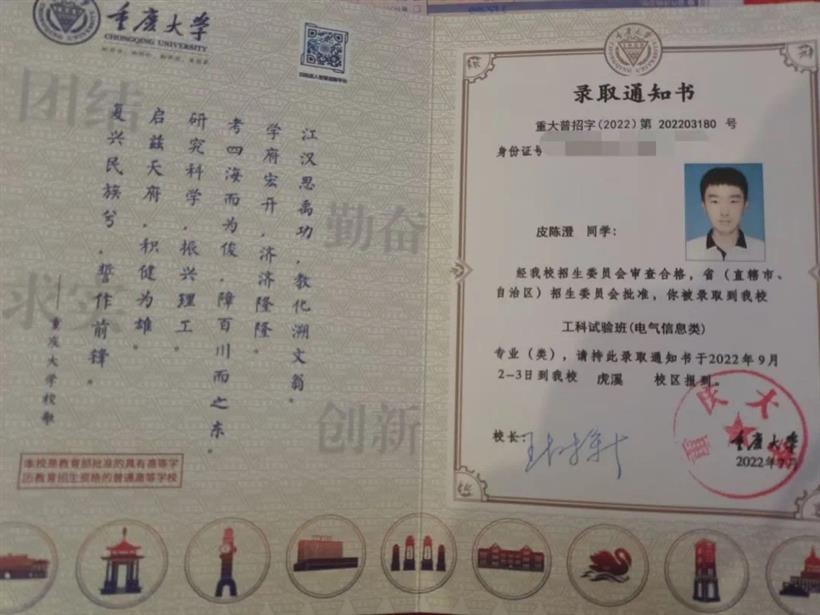 重庆大学
CHONGQING UNIVERSITY
江汉思禹功，教化溯文翁。
学府宏开，济济隆隆。
考四海而为俊，障百川而之东。
研究科学，振兴理工。
启兹天府，积健为雄。
复兴民族兮，誓作前锋。
——重庆大学校歌
团结
勤奋
求实
创新
本校是教育部批准的具有高等学
历教育招生资格的普通高等学校
录取通知书
重大普招字(2022)第 202203180 号
身份证号
皮陈澄 同学：
经我校招生委员会审查合格，省（直辖市、
自治区）招生委员会批准，你被录取到我校
工科试验班(电气信息类)
专业（类），请持此录取通知书于2022年9月
2-3日到我校 虎溪 校区报到。
校长：
重庆大学
2022年7月